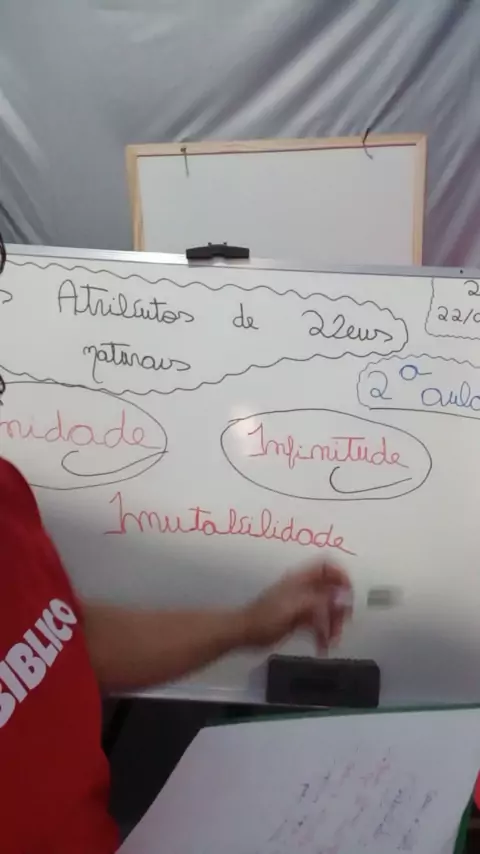 s Atributos de Deus
naturais
2
22/0
2ª aula
nidade
Infinitude
Imutabilidade
BIBLICO